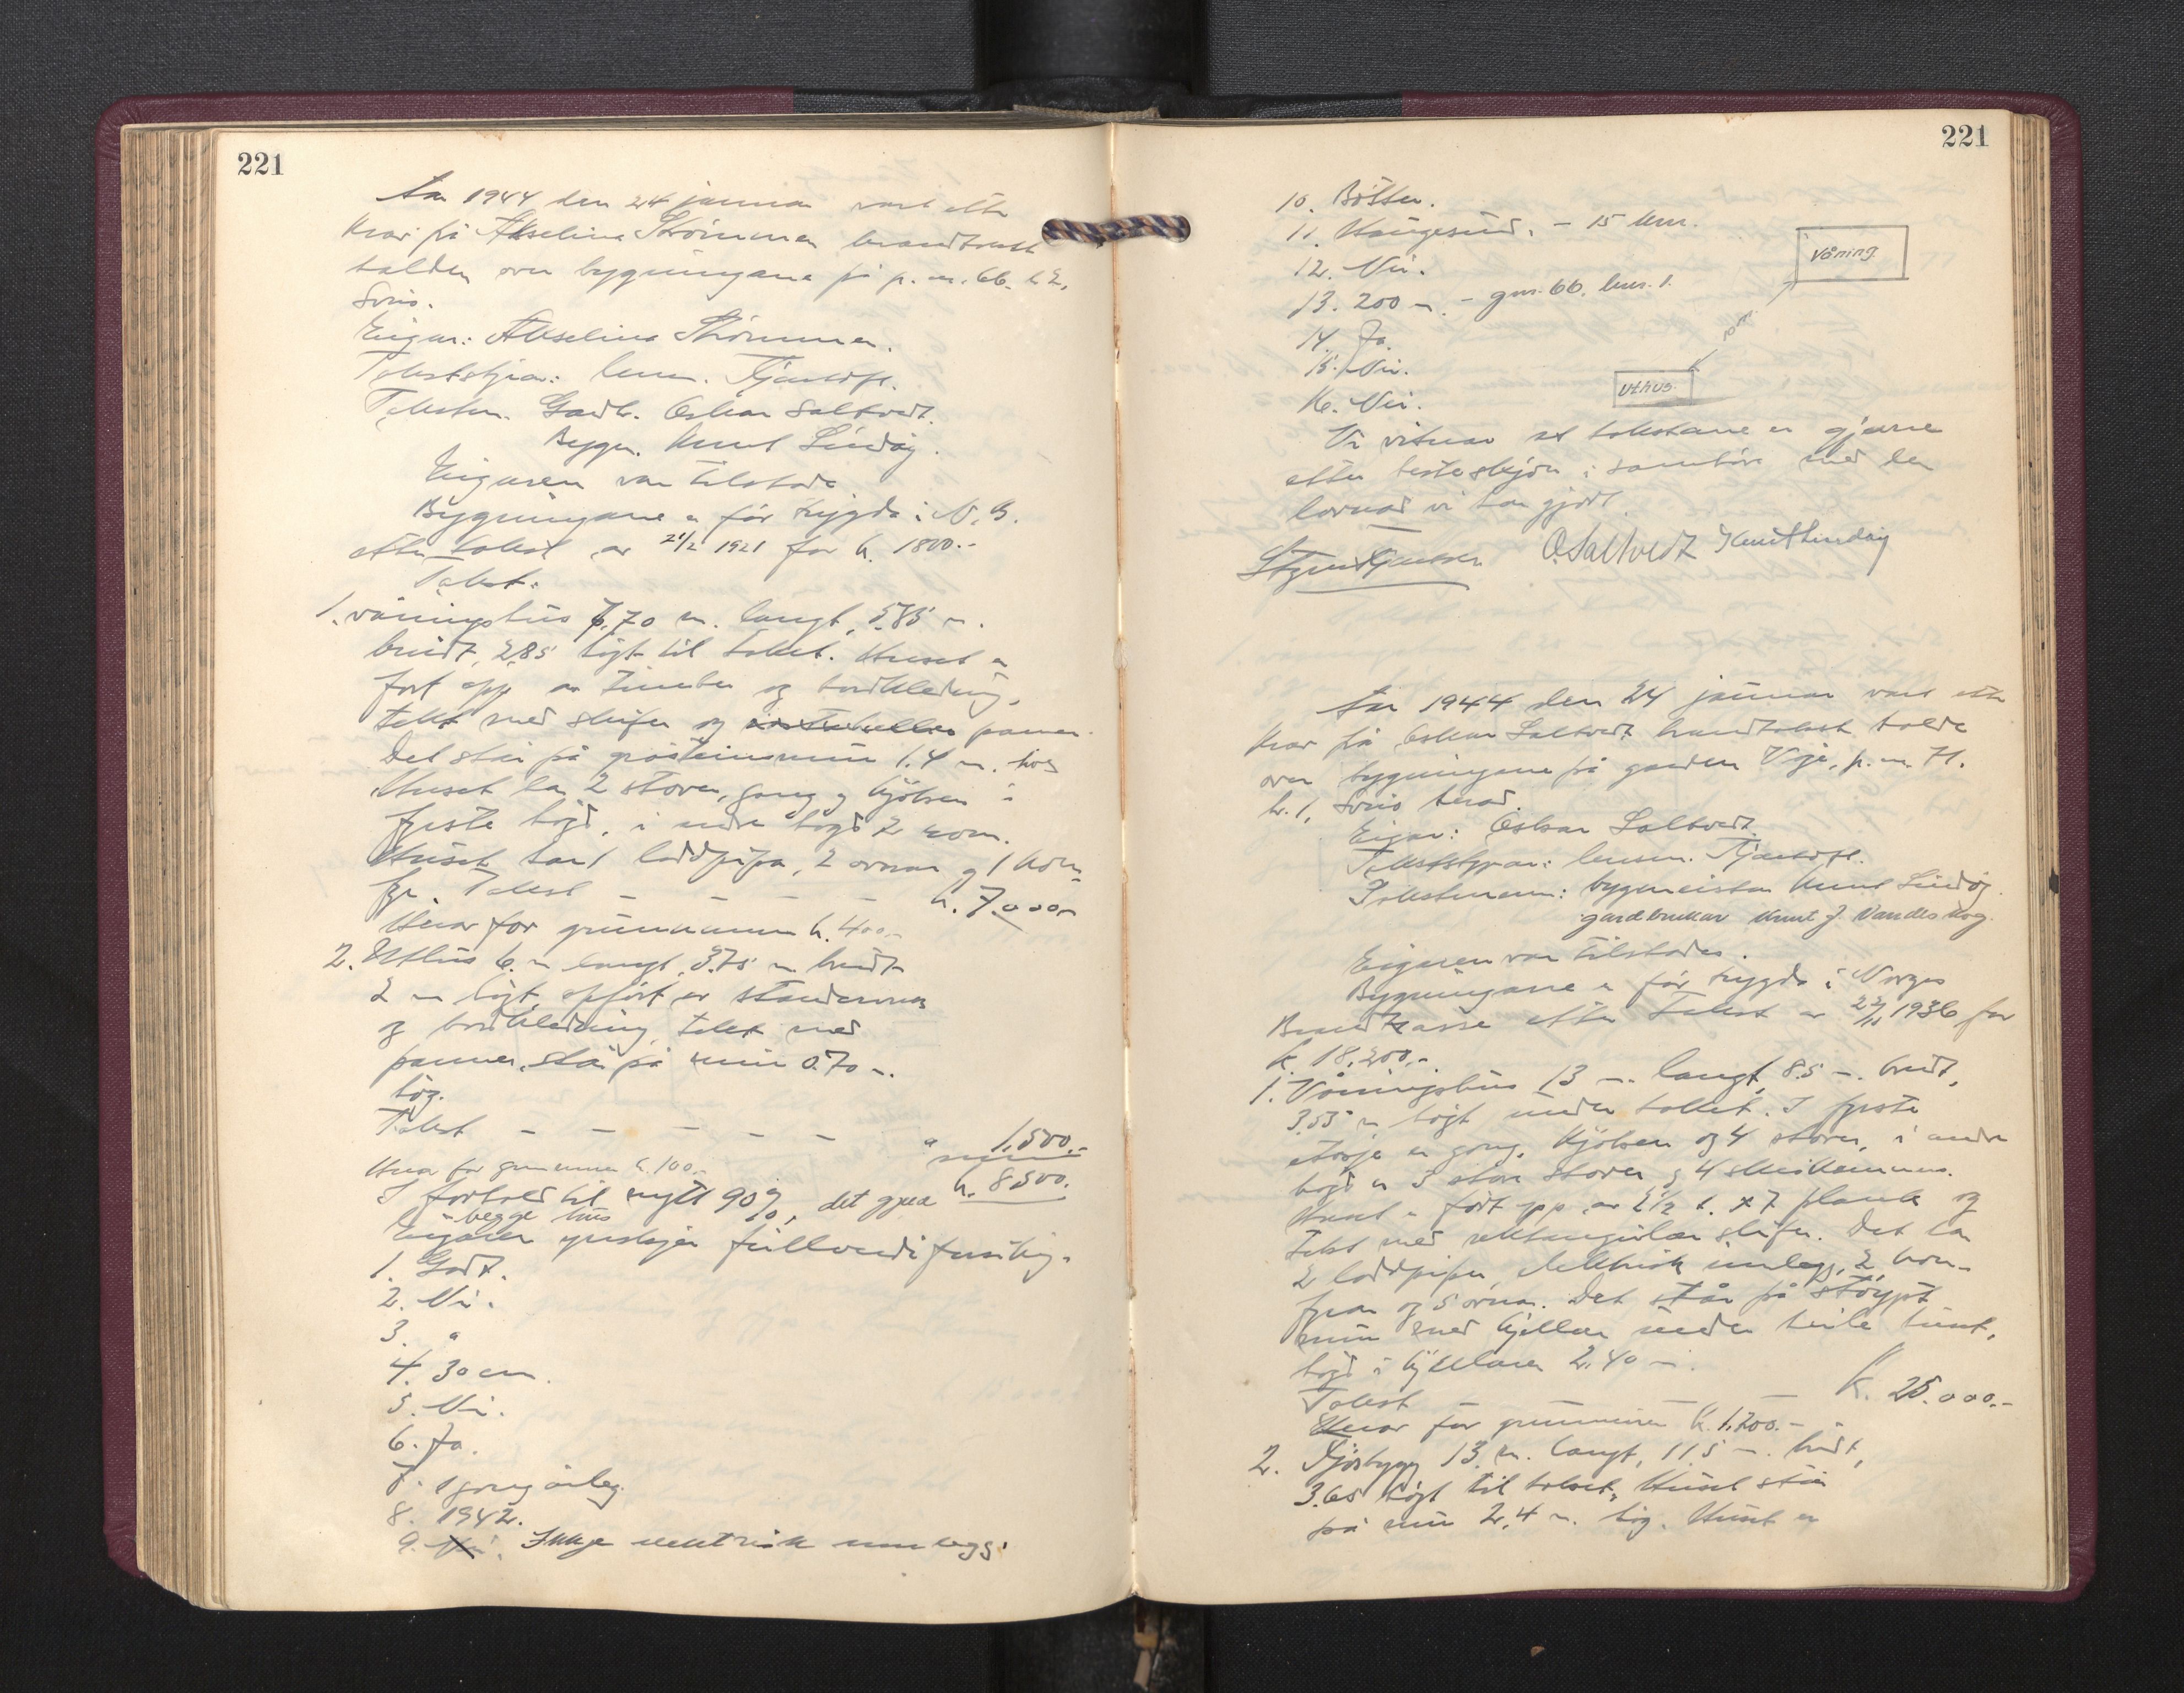 221
Aar 1944 den 24 januar vart etter
krav på Akselina Strömmen brandtakst
halden over bygningane på g. nr. 66. b 2,
Sveio.
Eigar: Akselina Strömmen.
Takststyrar: lensm. Tjantoft.
Takstm. Gardb. Oskar Saltvedt.
Byggm. Knut Lindöy.
Eigaren var tilstade
Bygningane er för trygda i N. B.
etter takst av 21/2 1921 for k. 1800.-
Takst:
1. våningshus 7,70 m. langt, 5.85 m.
breidt, 2.85 högt til taket. Huset er
fört opp av timber og bordkledning,
tekt med skifer og panner.
Det står på gråsteinsmur 1.4 m. hög
Huset har 2 stover, gang og kjöken i
fyrste högd, i andre högd 2 rom.
Huset har 1 loddpipa, 2 omnar og 1 kom-
fyr. Takst — — — — k. 7.000.-
Herav for grunnmuren k. 400.-
2. Uthus 6. m langt, 3.75 m. breidt
2 m högt, opfört av
og bordkledning, tekt med
panner, står på mur 0.70 m.
hög.
Takst — — — — — " 1.500.-
Herav for grunnmuren k. 100.-
k. 8500.
I forhold til nytt 90 %, det gjeld
begge hus
Eigaren ynskjer fullverdiforsikring.
1. Godt.
2. Nei.
3. "
4. 30 cm.
5. Nei.
6. Ja.
7. 1 gong årleg.
8. 1942.
9. Nei. Ikkje elektrisk innlegg.
221
10. Bötter.
11. Haugesund. - 15 km.
12. Nei.
13. 200 m. - gnr. 66. bnr. 1.
14. Ja.
15. Nei.
16. Nei.
Våning.
70 m.
Uthus.
Vi vitnar at takstane er gjevne
etter beste skjön i samhöve med den
lovnad vi har gjort.
O. Saltvedt Knut Lindöy
Aar 1944 den 24 januar vart etter
krav frå Oskar Saltvedt brandtakst halde
over bygningane på garden Vije, g. nr. 71.
br. 1, Sveio herad.
Eigar: Oskar Saltvedt.
Takststyrar: lensm. Tjantoft.
Takstmenn: bygmeister Knut Lindöy.
gardbrukar Knut J. Vandaskog.
Eigaren var tilstades.
Bygningane er för trygda i Norges
Brandkasse etter takst av 1936 for
k. 18.200.-
1. Våningshus 13 m. langt, 8.5 m. breidt,
3.55 m högt under taket. I fyrste
etasje er gang, kjöken og 4 stover, i andre
högd er 3 store stover og 4
Huset er fört opp av 2 1/2 t. x 7 plank og
tekt med rektangulær skifer. Det har
2 loddpiper, elektrisk innlegg, 2 kom-
fyrar og 5 omnar. Det står på stöypt
mur med kjellar under heile huset,
högd i kjellaren 2.40 m.
Takst — — — K. 25.000.-
Herav for grunnmuren k. 1.200.-
2. Fjösbygg 13 m. langt, 11.5 m. breidt,
3.65 högt til taket. Huset står
på mur 2,4 m. hög. Huset er